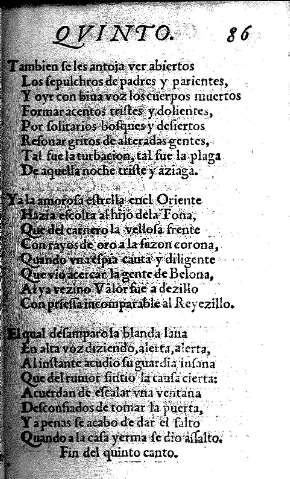 QVINTO. 86
Tambien se les antoja ver abiertos
Los sepulchros de padres y parientes,
Y oyr con biua voz los cuerpos muertos
Formar acentos tristes y dolientes,
Por solitarios bosques y desiertos
Resonar gritos de alteradas gentes,
Tal fue la turbacion, tal fue la plaga
De aquella noche triste y aziaga.
Ya la amorosa estrella en el Oriente
Hazia escolta al hijo de la Toña,
Que del carnero la vellosa frente
Con rayos de oro a la sazon corona,
Quando vna espia cauta y diligente
Que vio acercar la gente de Belona,
Al vezino Valòr fue a dezillo
Con priessa incomparable al Reyezillo.
El qual desamparò la blanda lana
En alta voz diziendo, alerta, alerta,
Al instante acudio su guardia insana
Que del rumor sintio la causa cierta:
Acuerdan de escalar vna ventana
Desconfiados de tomar la puerta,
Y apenas se acabo de dar el salto
Quando a la casa yerma se dio assalto.
Fin del quinto canto.